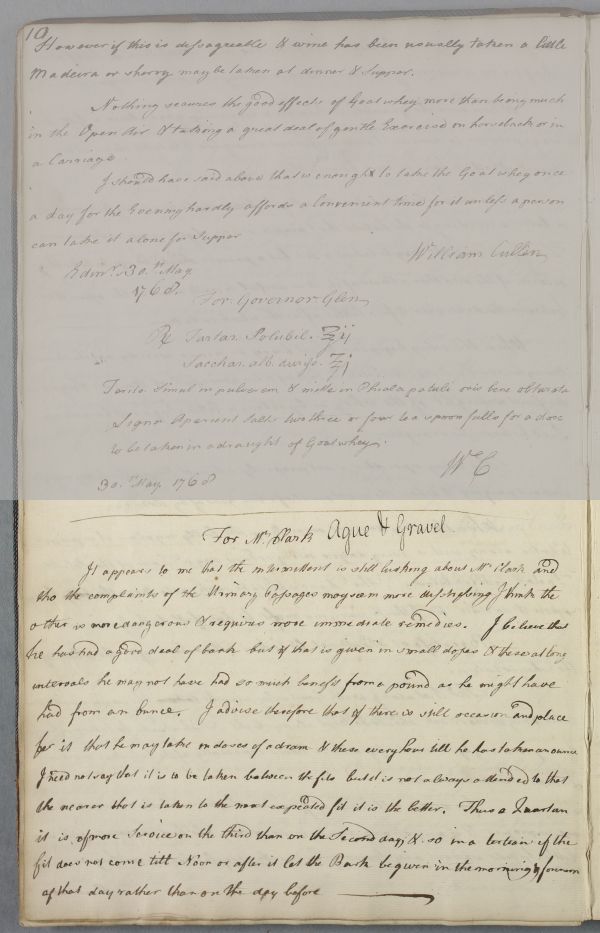 10
However if this is dissagreeable & wine has been usually taken a little
Madeira or sherry may be taken at dinner & Supper.
Nothing secures the good effects of Goat whey more than being much
in the Open Air & taking a great deal of gentle Exercise on horseback or in
a Carriage
I should have said above that is enough to take the Goat whey once
a day for the Evening hardly affords a Convenient time for it unless a person
can take it alone for Supper
William Cullen
Edinr. 30th May
1768.
For Governor Glen
℞ Tartar. Solubil. ℥ij
Sacchar. alb. ℥j
simul in pulverem & mitte in Phiala patuli oris bene obturata
Signa Aperient Salts two three or four tea spoon fulls for a dose
to be taken in a draught of Goat whey.
Wm C
30th May 1768
For Mr Clark Ague & Gravel
It appears to me that the intermittent is still lurking about Mr Clark and
tho the complaints of the Urinary Passages may seem more distressing I think the
other is more dangerous & requires more immediate remedies. I believe that
he has had a good deal of bark but if that is given in small doses & these at long
intervals he may not have had so much benefit from a pound as he might have
had from an ounce. I advise therefore that if there is still occasion and place
for it that he may take in doses of a dram & these every hour till he has taken an ounce
I need not say that it is to be taken between the fits but it is not always attended to that
the nearer that is taken to the next expected fit it is the better. Thus a Quartan
it is of more Service on the third than on the Second day, & so in a tertian if the
fit does not come till Noon or after it let the Bark be given in the morning & forenoon
of that day rather than on the day before